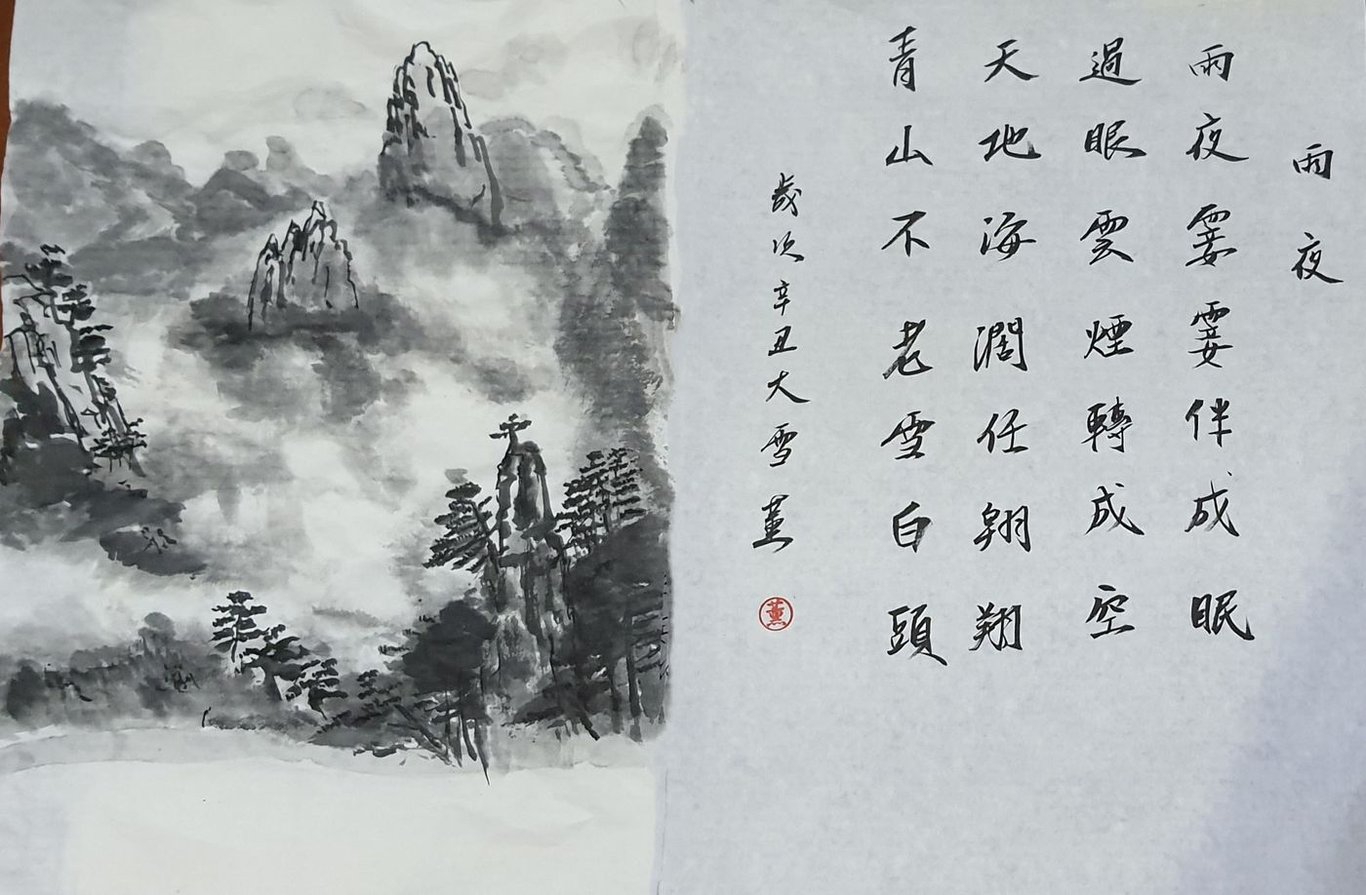 雨夜
雨夜霎霎伴成眠
過眼雲煙轉成空
天地海濶任翱翔
青山不老雪白頭
歲次辛丑大雪薰
薰